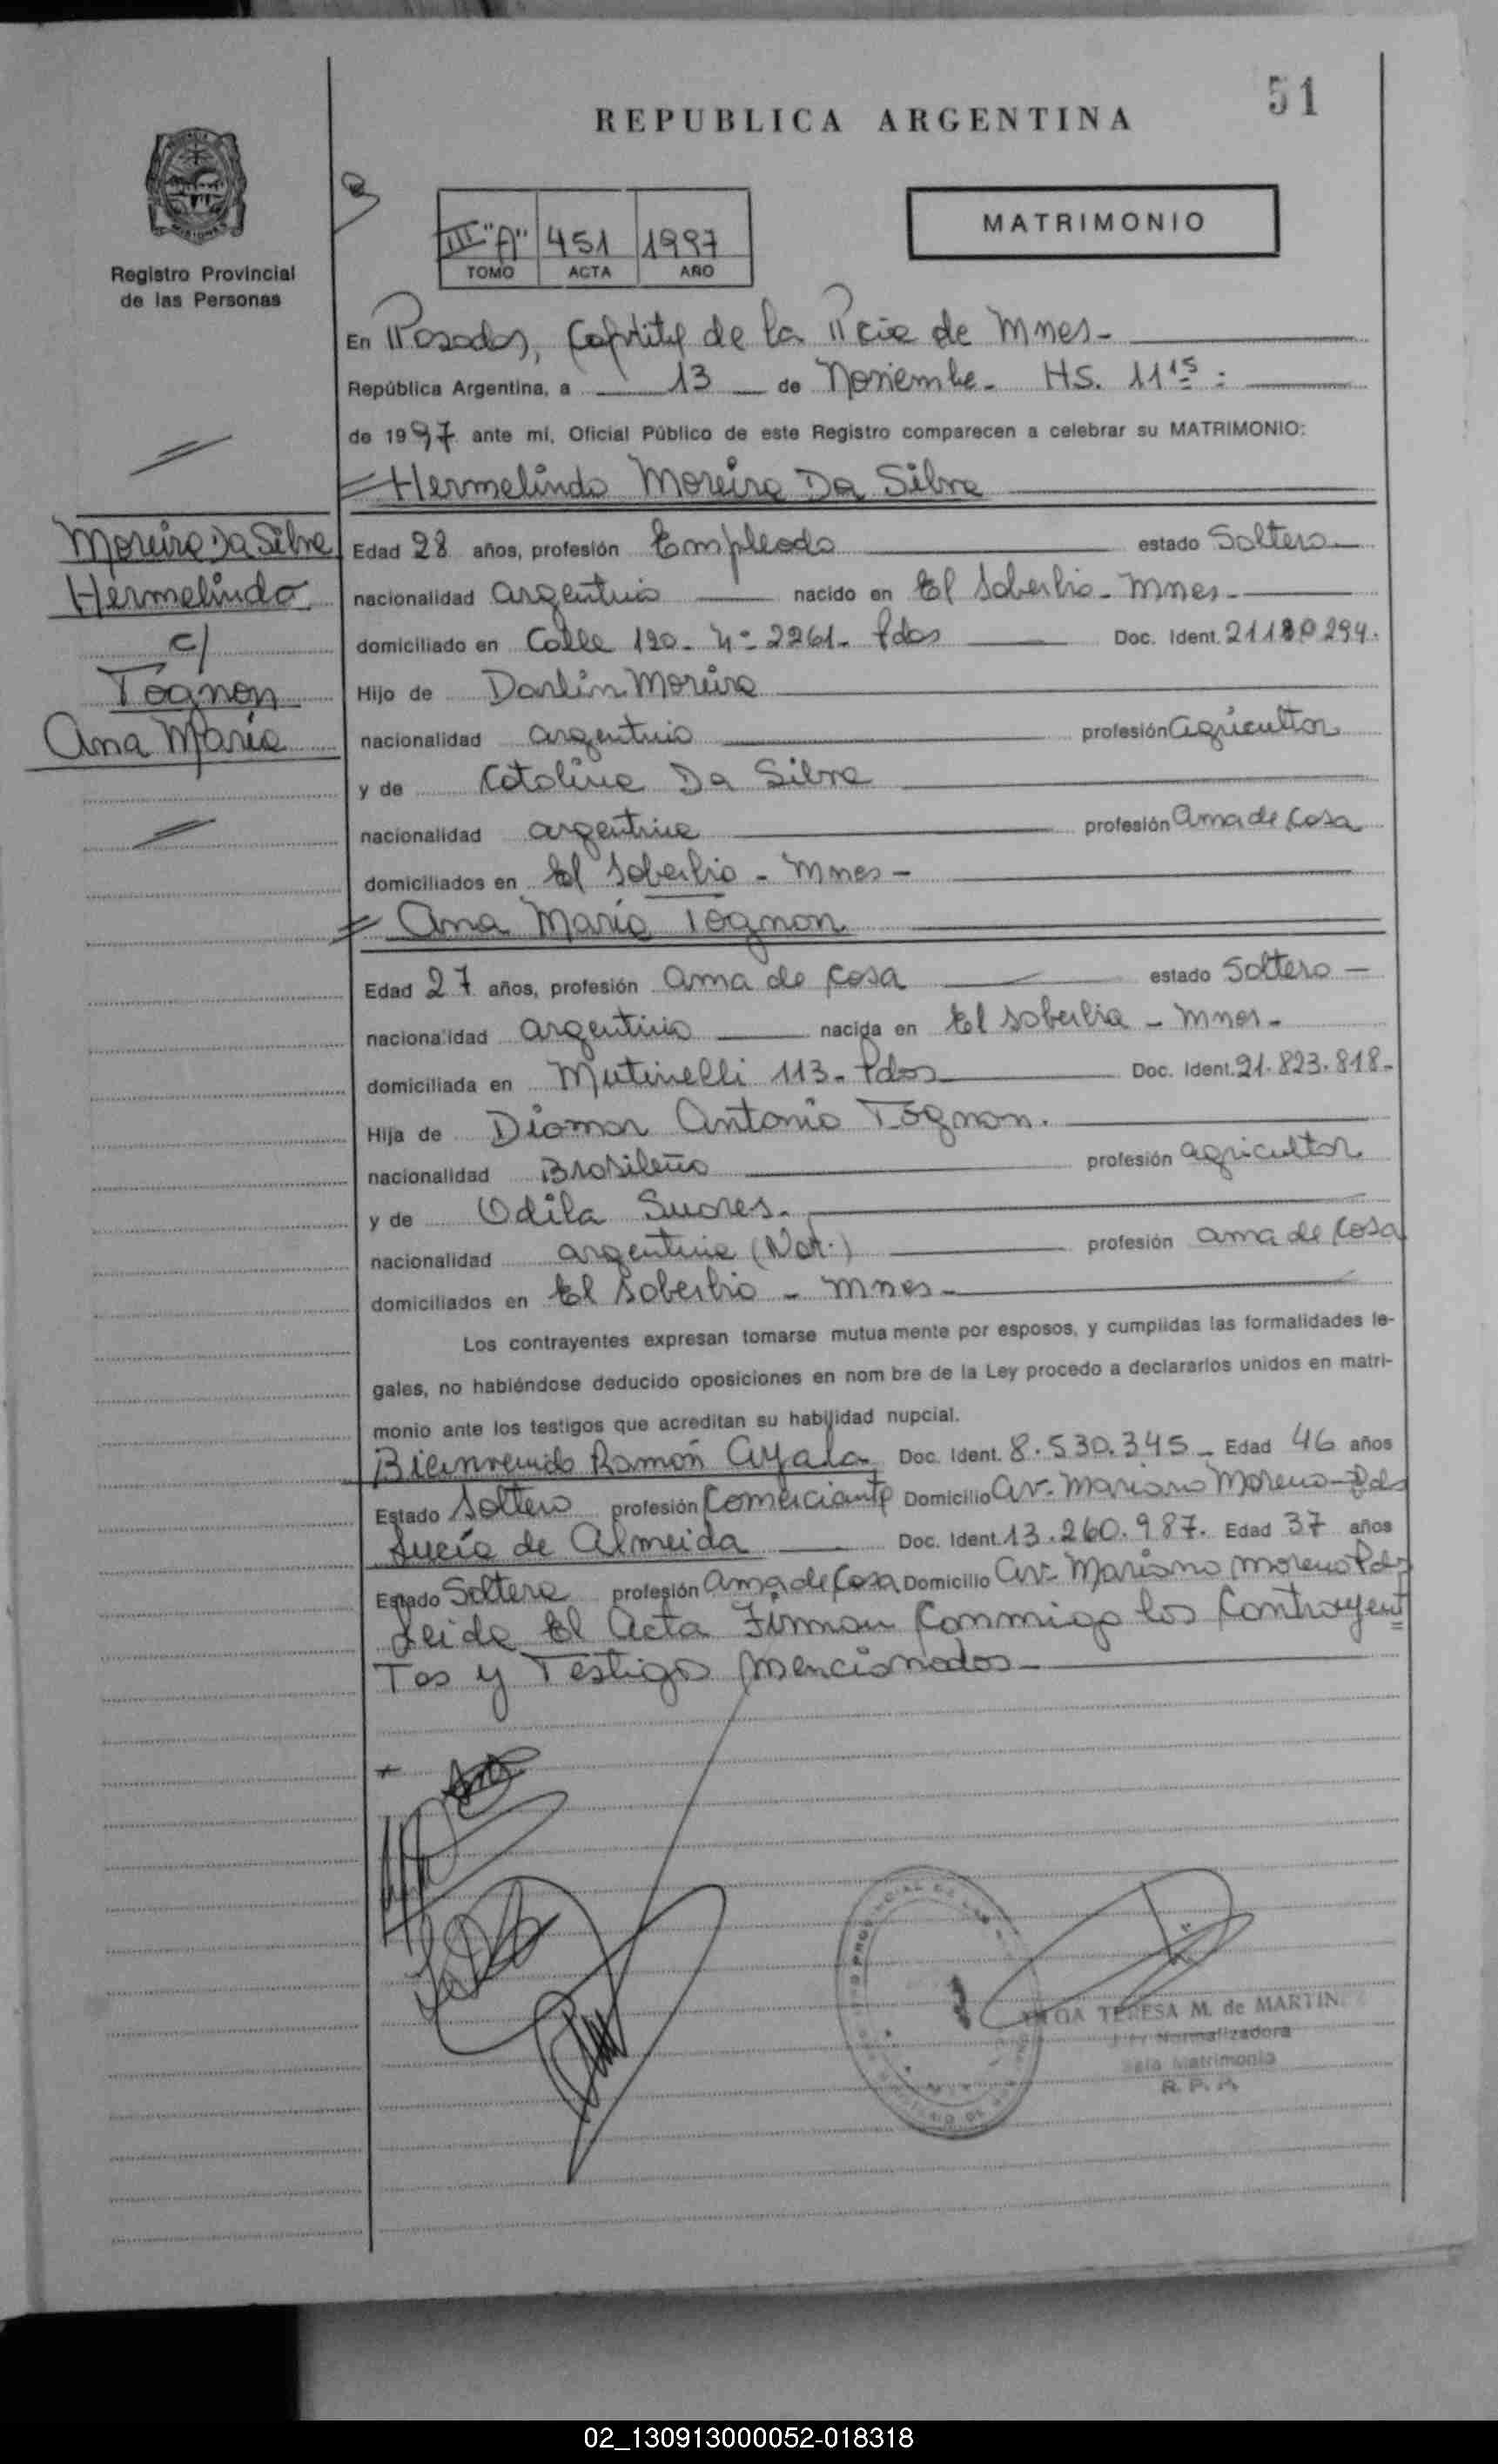 51
REPUBLICA ARGENTINA
MATRIMONIO
III "A" 451 1997
TOMO ACTA AÑO
Registro Provincial
de las Personas
En Posadas, Capital de la Pcia de Mnes-
República Argentina, a 13 de Noviembre. HS. 11 15
de 1997 ante mí, Oficial Público de este Registro comparecen a celebrar su MATRIMONIO:
Hermelindo Moreira Da Silva
Moreira Da Silva
Hermelindo
c/
Tognon
Ana María
Edad 28 años, profesión Empleado estado Soltero
nacionalidad argentino nacido en El Soberbio - Mnes-
domiciliado en Calle 120 - Nº 2261 - Pdas Doc. Ident. 21180294.
Hijo de Darlin Moreira
nacionalidad argentino profesión agricultor
y de Catalina Da Silva
nacionalidad argentina profesión ama de casa
domiciliados en El Soberbio - Mnes -
Ana María Tognon
Edad 27 años, profesión ama de casa estado Soltera -
nacionalidad argentina nacida en El Soberbio - Mnes-
domiciliada en Mutinelli 113 - Pdas Doc. Ident. 21.823.818-
Hija de Diomar Antonio Tognon.
nacionalidad Brasileño profesión agricultor
y de Odila Suares.
nacionalidad argentina (Nat.) profesión ama de casa
domiciliados en El Soberbio - Mnes-
Los contrayentes expresan tomarse mutua mente por esposos, y cumplidas las formalidades le-
gales, no habiéndose deducido oposiciones en nom bre de la Ley procedo a declararlos unidos en matri-
monio ante los testigos que acreditan su habilidad nupcial.
Bienvenido Ramón Ayala Doc. Ident. 8.530.345 - Edad 46 años
Estado Soltero profesión Comerciante Domicilio av. Mariano Moreno - Pdas
Lucía de Almeida Doc. Ident. 13.260.987. Edad 37 años
Estado Soltera profesión ama de casa Domicilio av. Mariano Moreno Pdas
Leida El Acta Firman Conmigo los Contrayen
Tes y Testigos mencionados
TERESA M. de MARTINEZ
Normalizadora
Sala Matrimonio
02_130913000052-018318